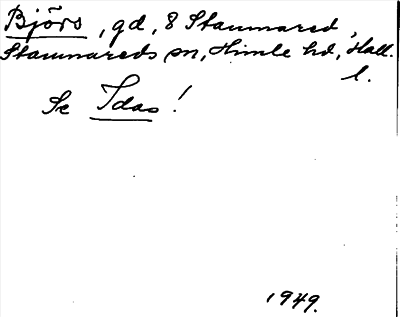 Björs, gd, 8 Stamnared,
Stamnareds sn, Himle hd, Hall.
l.
Se Idas!
1949.